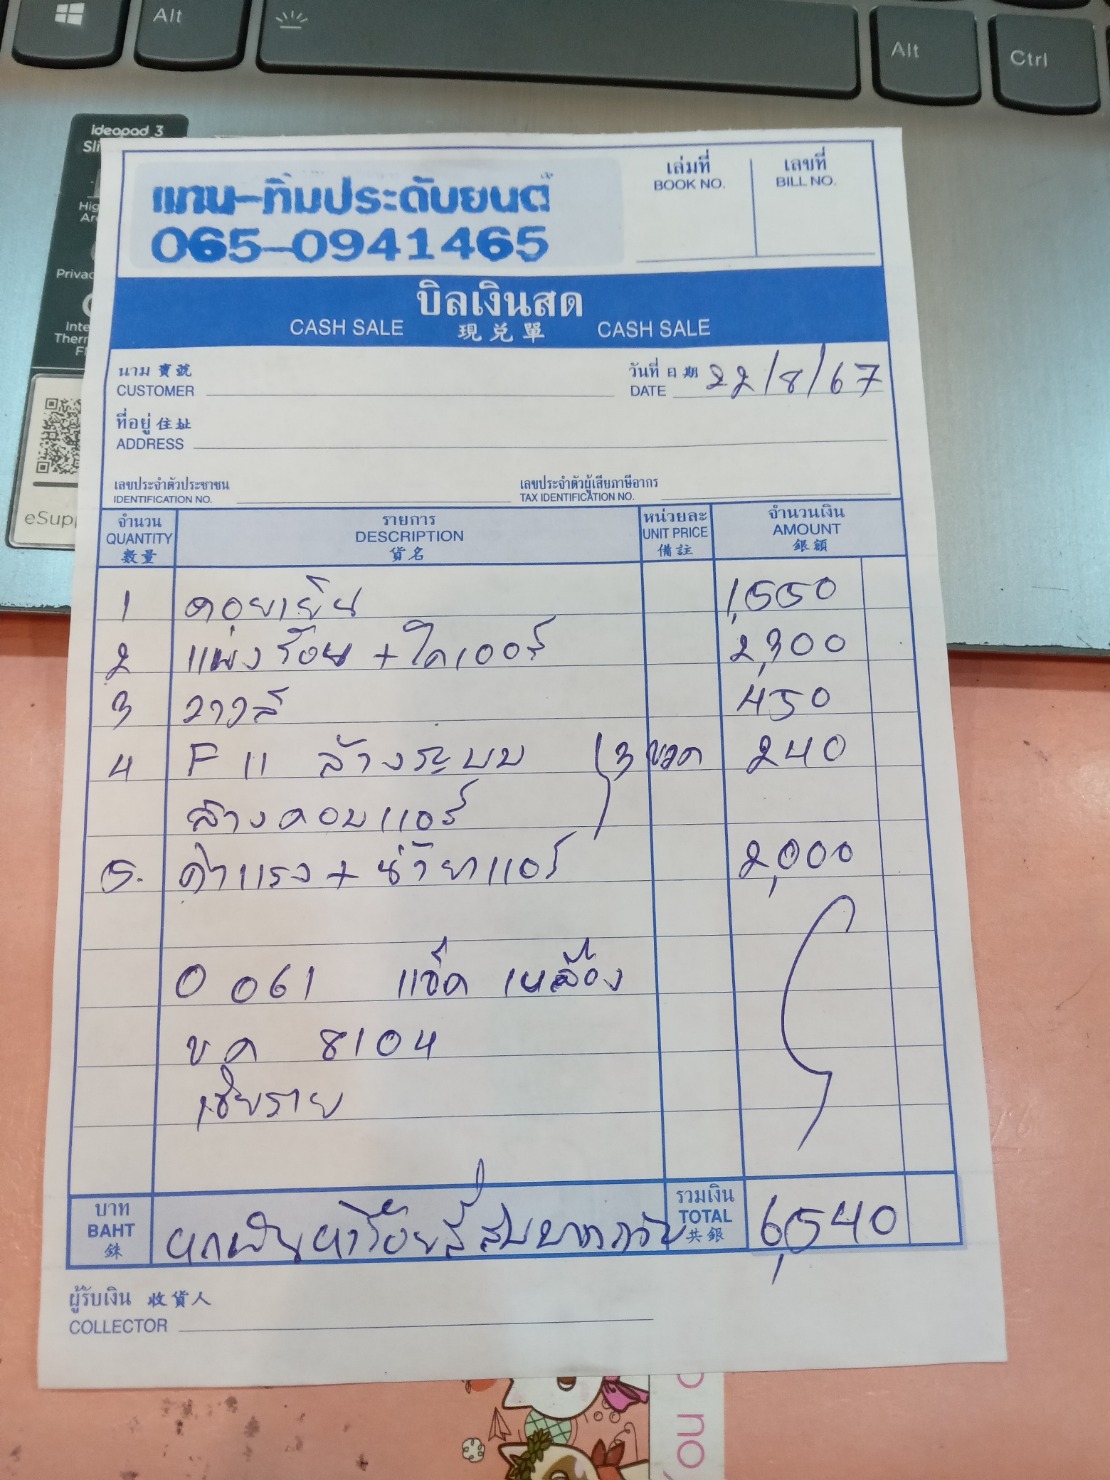 Alt
Alt
Ctrl
Ideapad 3
แทน-ทิมประดับยนต์
065-0941465
เล่มที่
BOOK NO.
เลขที่
BILL NO.
บิลเงินสด
CASH SALE 現兌單 CASH SALE
นาม 寶號
CUSTOMER
วันที่ 日期 22/8/67
DATE
ที่อยู่ 住址
ADDRESS
เลขประจำตัวประชาชน
IDENTIFICATION NO.
เลขประจำตัวผู้เสียภาษีอากร
TAX IDENTIFICATION NO.
จำนวน รายการ หน่วยละ จำนวนเงิน
QUANTITY DESCRIPTION UNIT PRICE AMOUNT
數量 貨名 備註 銀額
1 คอยเย็น 1,550
2 แผงร้อน + ไดเออร์ 2,300
3 วาวล์ 450
4 F 11 ล้างระบบ 3 ขวด 240
ล้างคอมแอร์
5. ค่าแรง + น้ำยาแอร์ 2,000
0 061 แช็ค เหลือง
บค 8104
เชียราย
บาท รวมเงิน
BAHT หกพันห้าร้อยสี่สิบบาทถ้วน TOTAL 6,540
銖 共銀
ผู้รับเงิน 收貨人
COLLECTOR